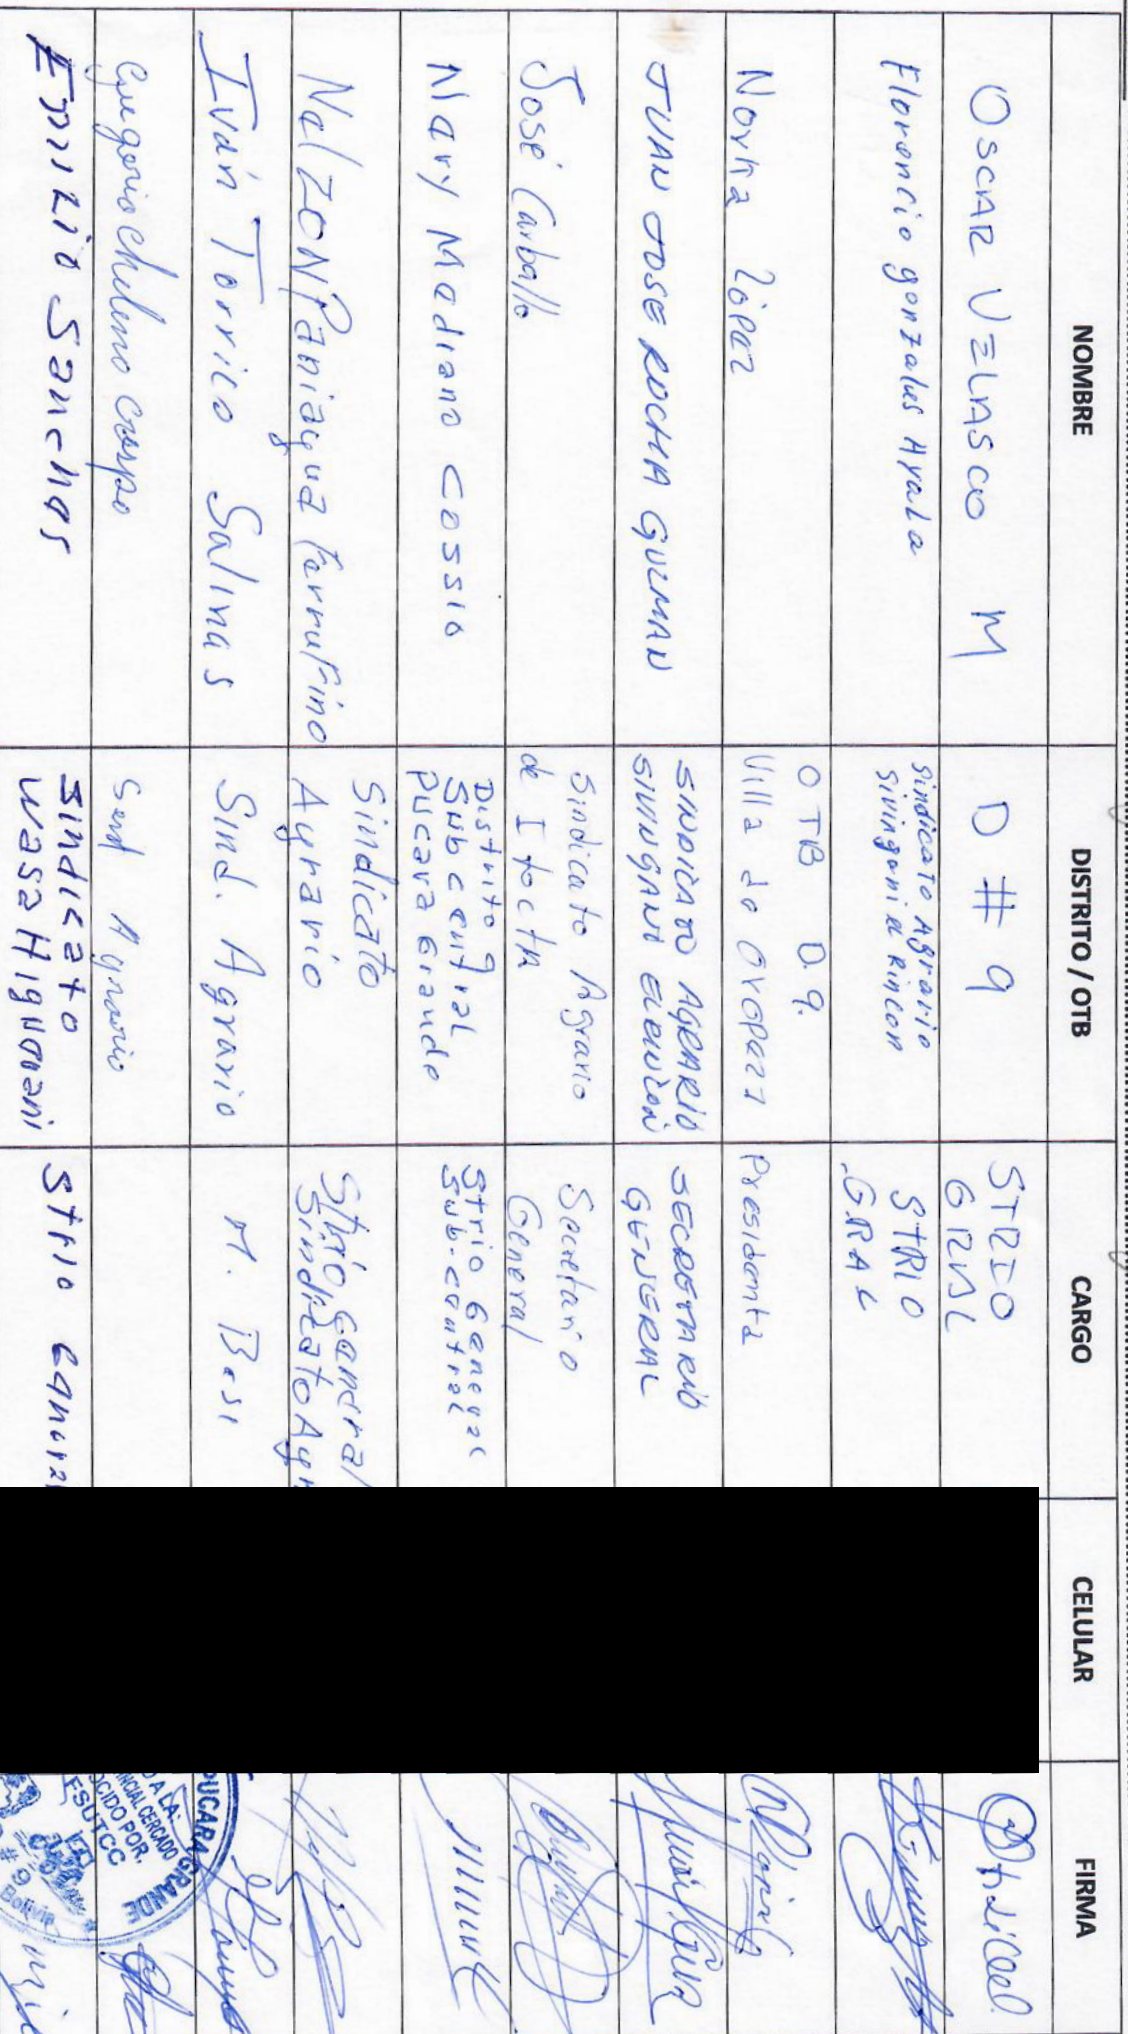 NOMBRE DISTRITO / OTB CARGO CELULAR FIRMA
OSCAR VELASCO M D # 9 STRIO
GRAL
Florencio gonzales Ayala Sindicato Agrario
Sivingani el Rincon STRIO
GRAL
Norka López OTB D.9.
Villa de Oropeza Presidenta
JUAN JOSE ROCHA GUZMAN SINDICATO AGRARIO
SIVINGANI SECRETARIO
GENERAL
José Carballo Sindicato Agrario
de Itocta Secretario
General
Mary Medrano Cossio Distrito 9
Subcentral
Pucara Grande Strio General
Sub-central
Nelzon Paniagua Ferrufino Sindicato
Agrario Strio General
Sindicato Agr
Iván Torrico Salinas Sind. Agrario M. Base
Gregorio Chileno Crespo Agrario
Sanchos Sindicato
Strio
PUCARA GRANDE
A LA:
CERCADO
POR.
FSUTCC
# 9
Bolivia